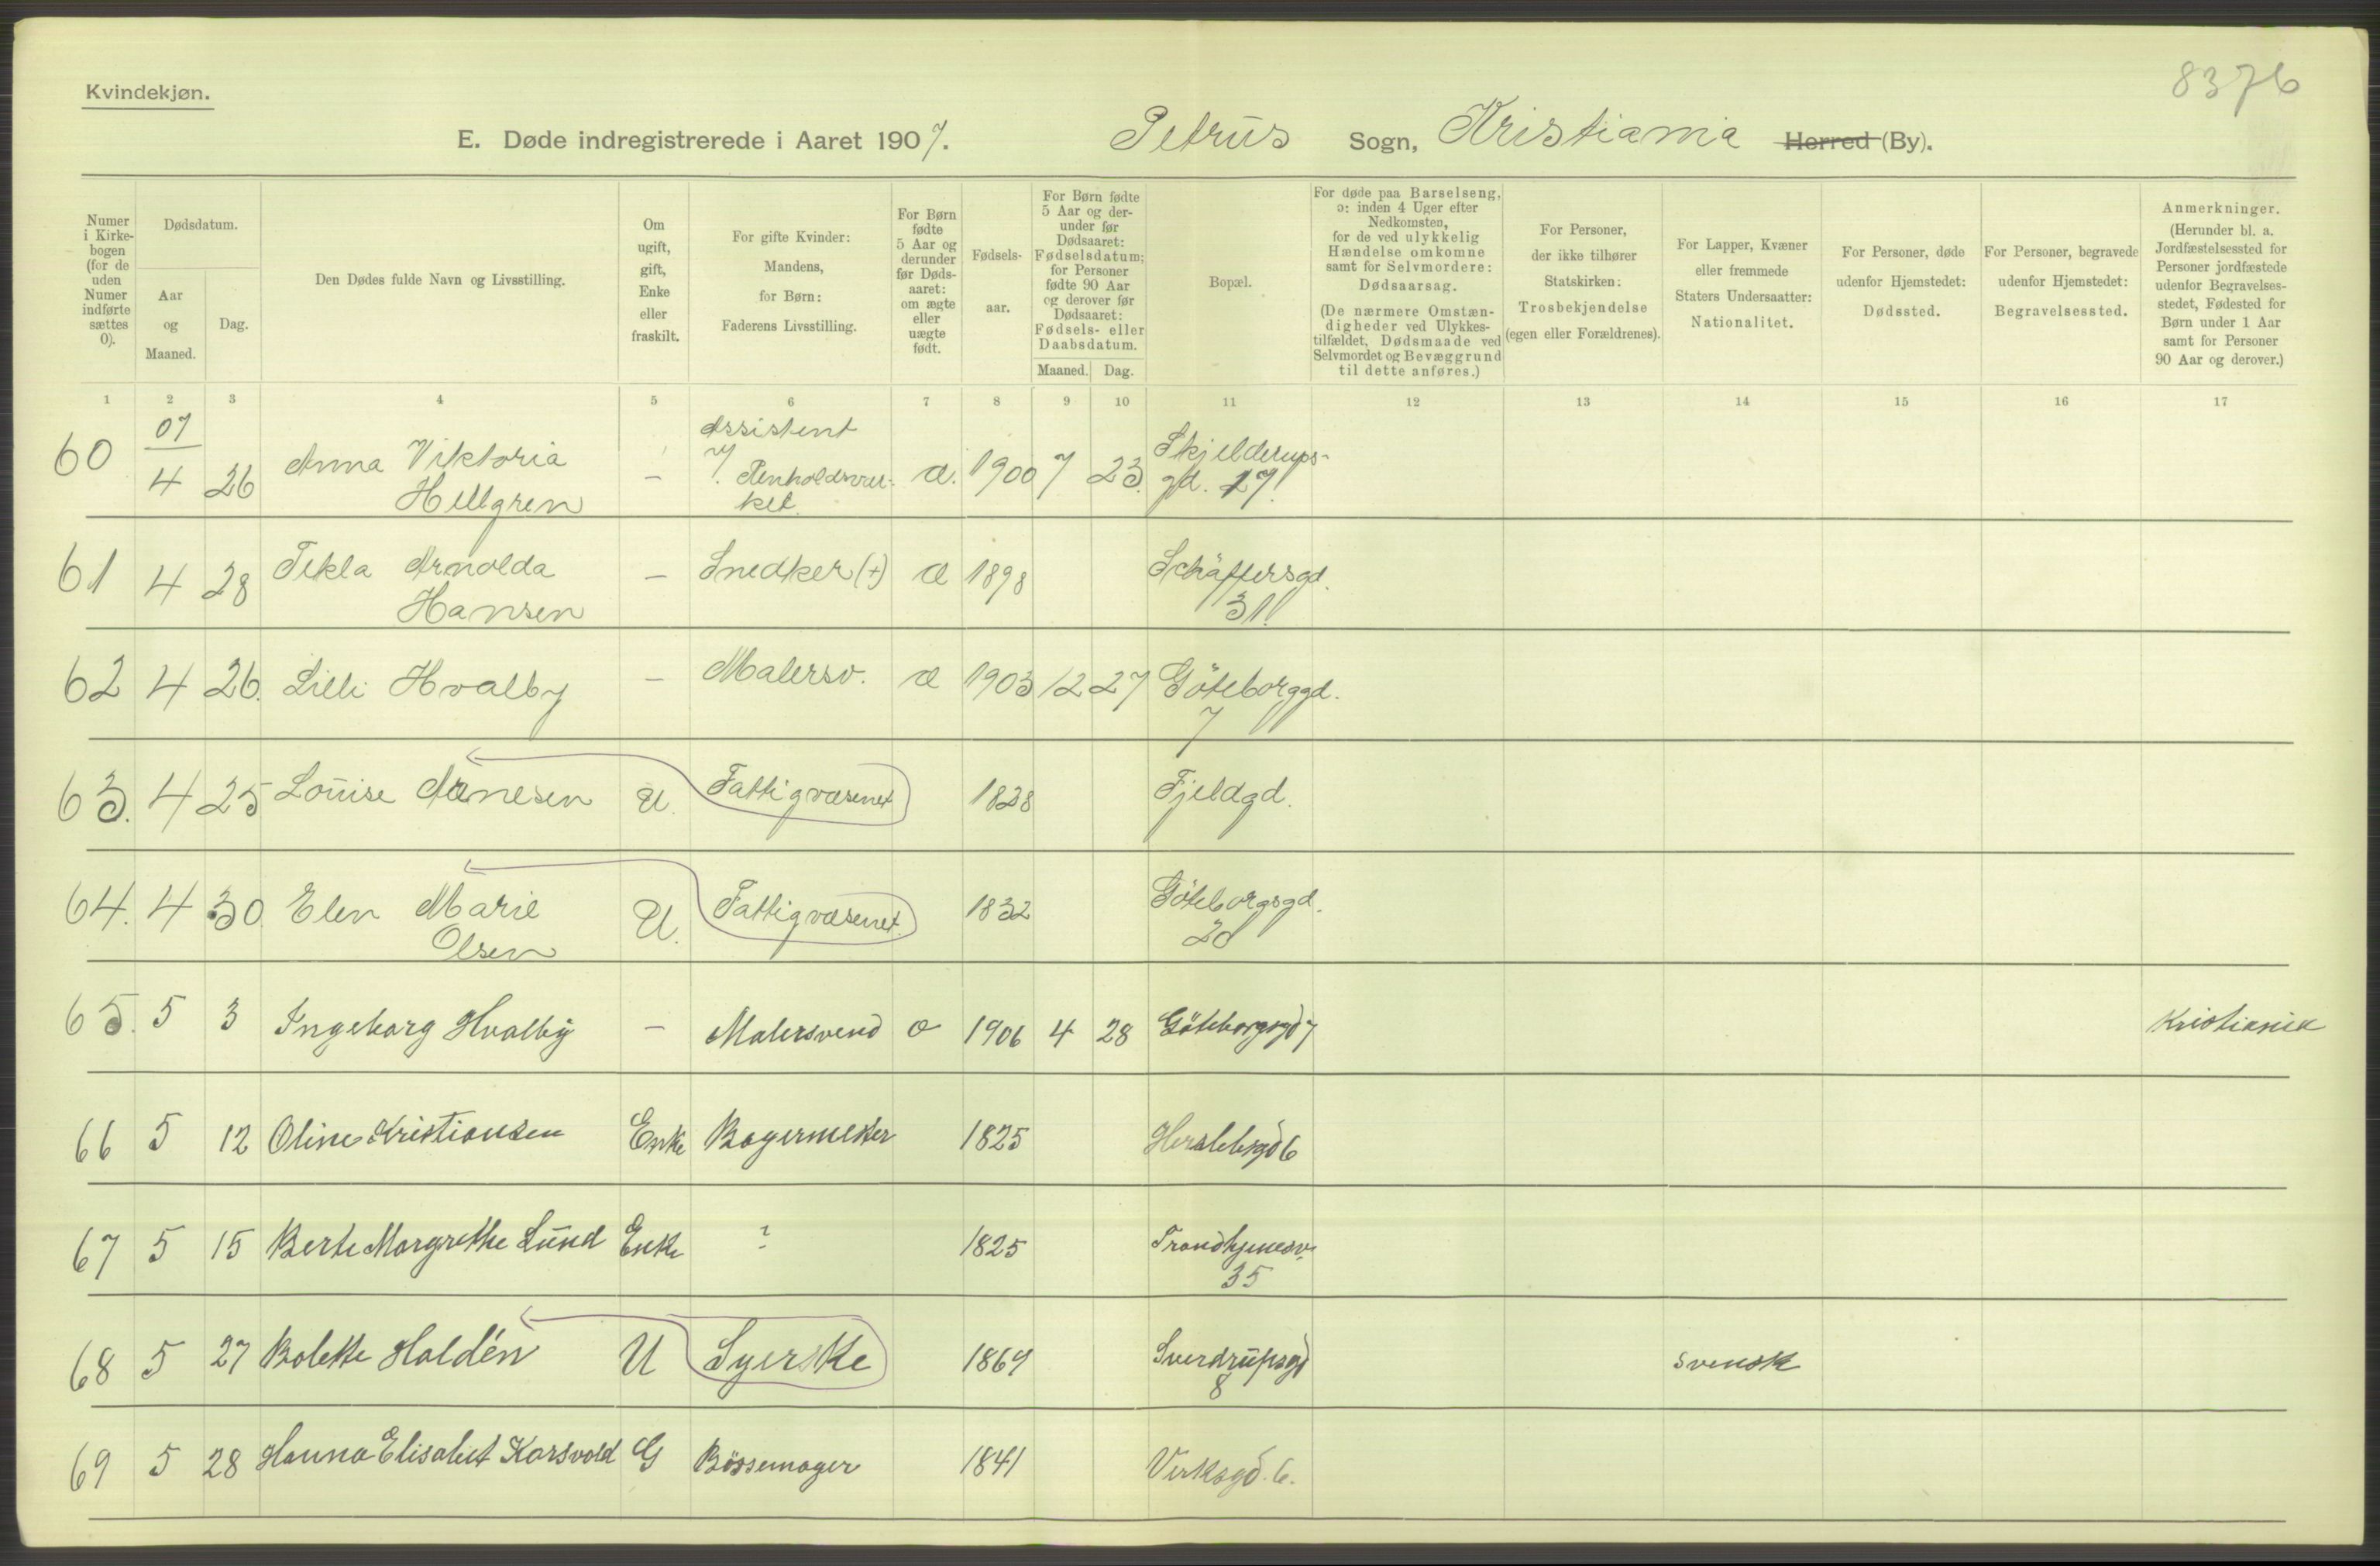 8376
Kvindekjøn.
E. Døde indregistrerede i Aaret 1907. Petrus Sogn, Kristiania Herred (By).
Numer i Kirke-bogen (for de uden Numer indførte sættes 0).
Dødsdatum.
Aar og Maaned.
Dag.
Den Dødes fulde Navn og Livsstilling.
Om ugift, gift, Enke eller fraskilt.
For gifte Kvinder: Mandens, for Børn: Faderens Livsstilling.
For Børn fødte 5 Aar og derunder før Døds-aaret: om ægte eller uægte født.
Fødsels-aar.
For Børn fødte 5 Aar og der-under før Dødsaaret: Fødselsdatum; for Personer fødte 90 Aar og derover før Dødsaaret: Fødsels- eller Daabsdatum.
Maaned. Dag.
Bopæl.
For døde paa Barselseng, ɔ: inden 4 Uger efter Nedkomsten, for de ved ulykkelig Hændelse omkomne samt for Selvmordere: Dødsaarsag.
(De nærmere Omstæn-digheder ved Ulykkes-tilfældet, Dødsmaade ved Selvmordet og Bevæggrund til dette anføres.)
For Personer, der ikke tilhører Statskirken: Trosbekjendelse (egen eller Forældrenes).
For Lapper, Kvæner eller fremmede Staters Undersaatter: Nationalitet.
For Personer, døde udenfor Hjemstedet: Dødssted.
For Personer, begravede udenfor Hjemstedet: Begravelsessted.
Anmerkninger. (Herunder bl. a. Jordfæstelsessted for Personer jordfæstede udenfor Begravelses-stedet, Fødested for Børn under 1 Aar samt for Personer 90 Aar og derover.)
1 2 3 4 5 6 7 8 9 10 11 12 13 14 15 16 17
60 07 4 26 Anna Viktoria Hellgren — Assistent v. Renholdsver-ket. æ. 1900 7 23. Skjelderups-gd. 17.
61 4 28 Tekla Arnolda Hansen — Snedker (+) æ 1898 Schäffersgd. 31.
62 4 26. Lilli Hvalby — Malersv. æ 1903 12 27 Göteborggd. 7
63. 4 25 Louise Arnesen U. Fattigvæsenet 1828 Fjeldgd.
64. 4 30. Elen Marie Olsen U. Fattigvæsenet. 1832 Göteborgsgd.
65. 5 3 Ingeborg Hvalby — Malersvend æ 1906 4 28 Göteborgsgd 7 Kristiania
66 5 12 Oline Kristiansen Enke Bagermester 1825 Herslebsgd 6
67 5 15 Berte Margrethe Lund Enke ? 1825 Trondhjemsv. 35
68 5 27 Bolette Holdén U Syerske 1869 Sverdrupsgd 8 svensk
69 5 28 Hanna Elisabet Korsvold G Bössemager 1841 Verksgd. 6.